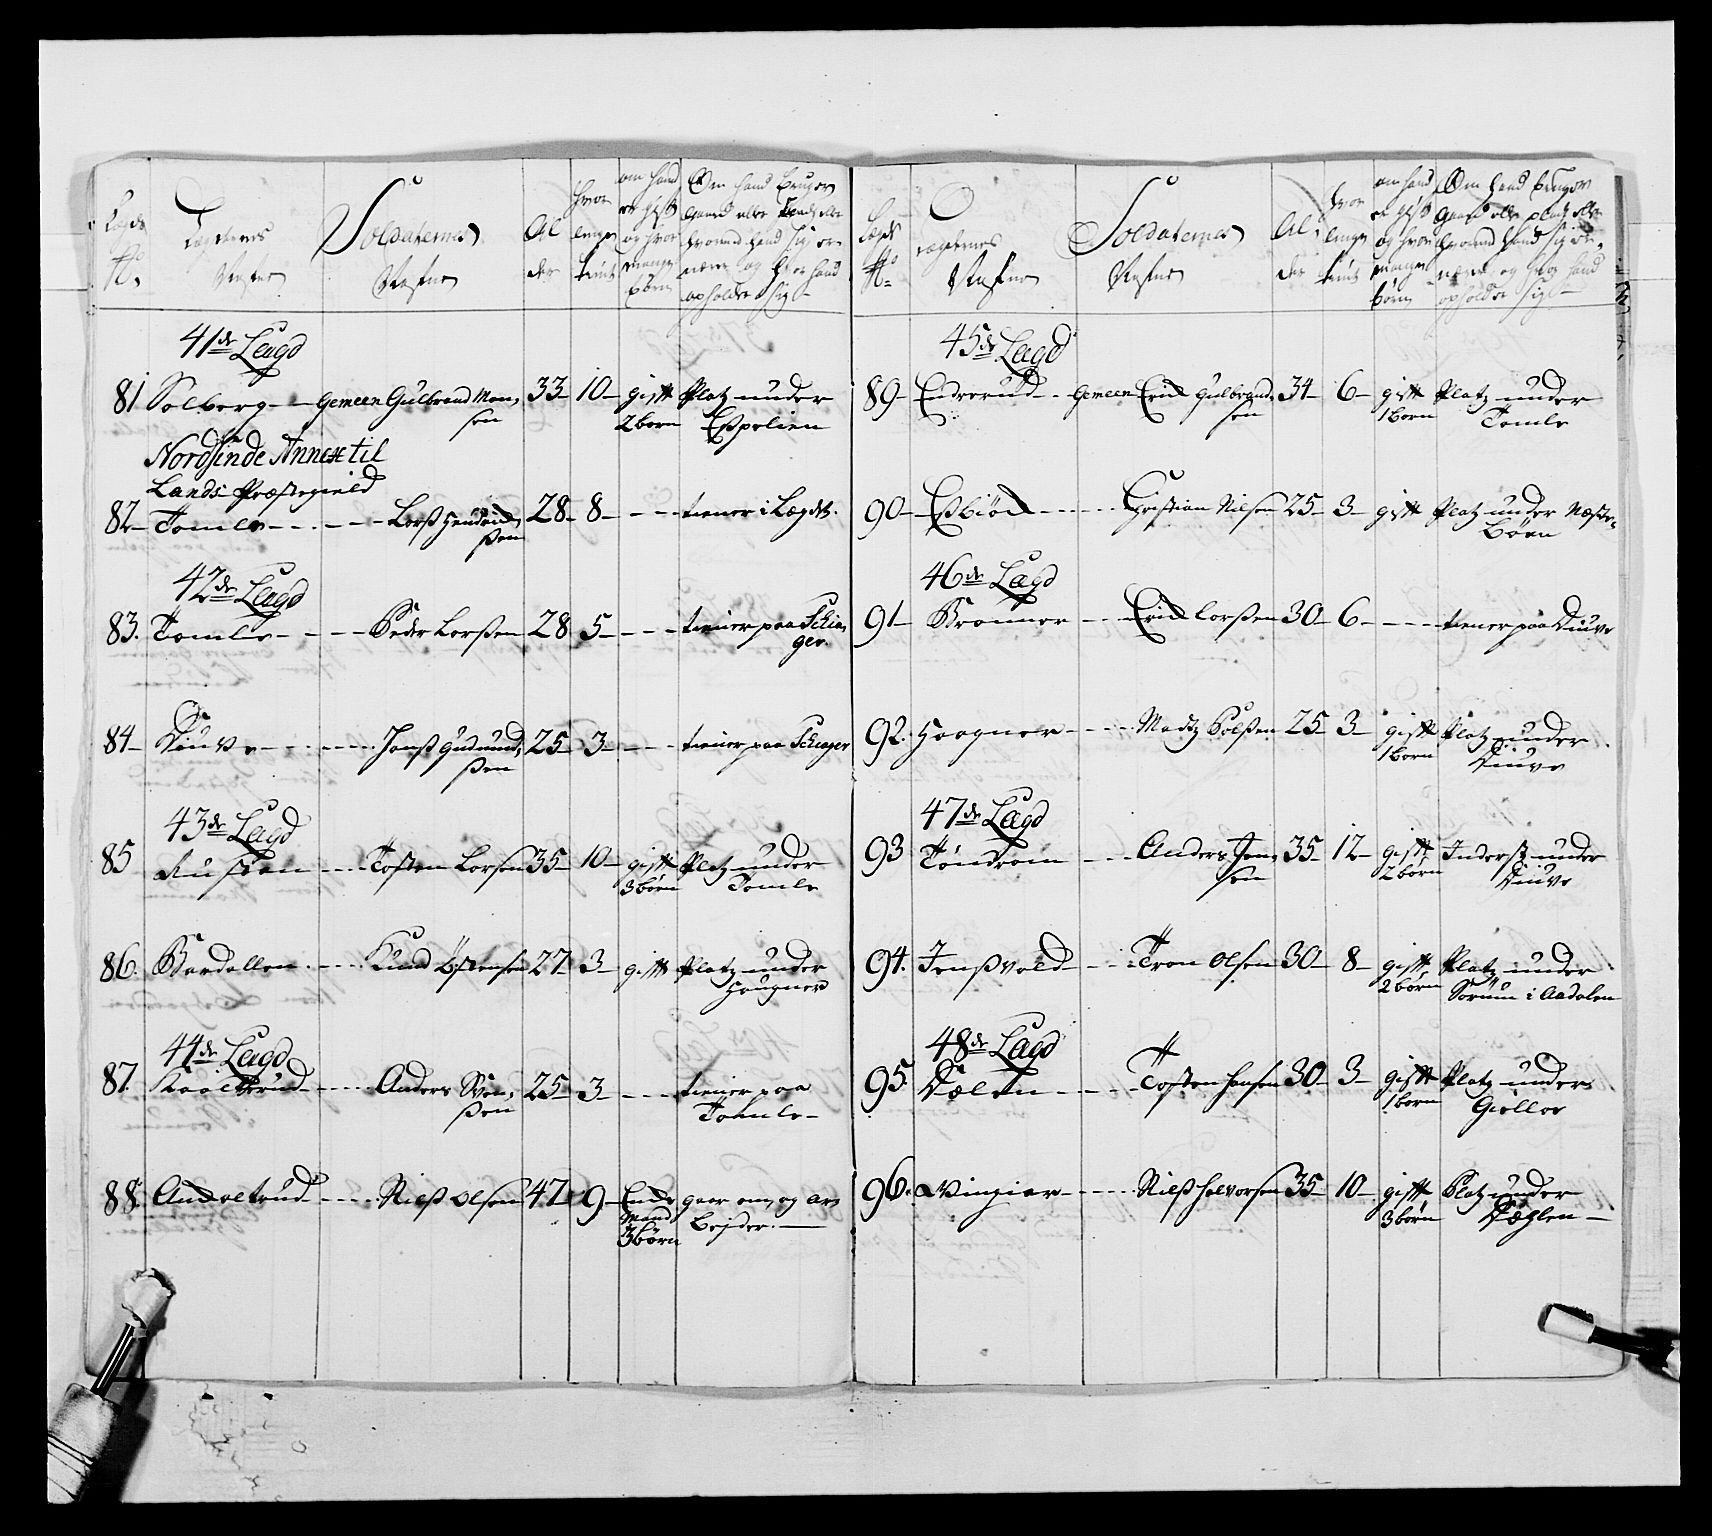 Lægds No
Lægdernes Nafne
Soldaternes Nafne
Alder
hvor længe tient
om hand er gift og hvor mange börn
Om hand bruger gaard eller platz eller hvormed hand sig ernærer og hvor hand opholder sig
41de Lægd
81 Solberg - - Gemeen Gulbrand Mon=
sen 33 - 10 - gift 2 born Platz under
Espelien
Nordsinde Annex til
Lands Præstegield
82 - Tomle - - - - Lorß Hendrich
ßen 28 - 8 - - - tiener i Lægdet.
42de Lægd
83. Tomle - - - - Peder Lorßen 28 5 - - - tiener paa Schin=
ger.
84 - Kiuve - - - - Jenß Gudmund=
ßen 25 - 3 - - - tiener paa Schinger
43de Lægd
85 Rusten - - - Tosten Lorsen 35 - 10 - gift 3 börn Platz under
Tomle
86. Bordallen - - - Knud Östensen 27 3 - gift Platz under
Haugner
44de Lægd
87. - - - Anders Sven=
ßen 25 - 3 - - - tiener paa
Tomle -
88. - - - Nielß Olsen 47 9 - Enke Mand 3 börn gaar om og ar=
bejder. -
Lægds No
Lægdernes Nafne
Soldaternes Nafne
Alder
hvor længe tient
om hand er gift og hvor mange börn
Om hand bruger gaard eller platz eller hvormed hand sig ernærer og hvor hand opholder sig
45de Lægd
89 - Enderud - - Gemeen Erich Gulbrand=
sen 34 - 6 - gift 1 born Platz under
Tomle
90 - Eßbiön - - - Christian Nilsen 25 - 3 - gift Platz under Næste=
böen
46de Lægd
91 - Bronner - - - Erich Lorßen 30 - 6 - - - tiener paa Kiuve
92. Haagner - - - Madtz Polßen 25 - 3 - gift 1 born Platz under
Kiuve
47de Lægd
93 Töndrom - - - Anders Jen=
sen 35 - 12 - gift 2 börn Inderst under
Kiuve
94. Jenßvold - - - Tron Olsen 30 - 8 - gift 2 born Platz under
Sörum i Aadalen
48de Lægd
95. Dælen - - - Tosten Hansen 30 - 3 - gift 1 born Platz under
Giellor
96. Wingier - - - Nielß Halvorsen 35 - 10 - gift 3 börn Platz under
Dæhlen -